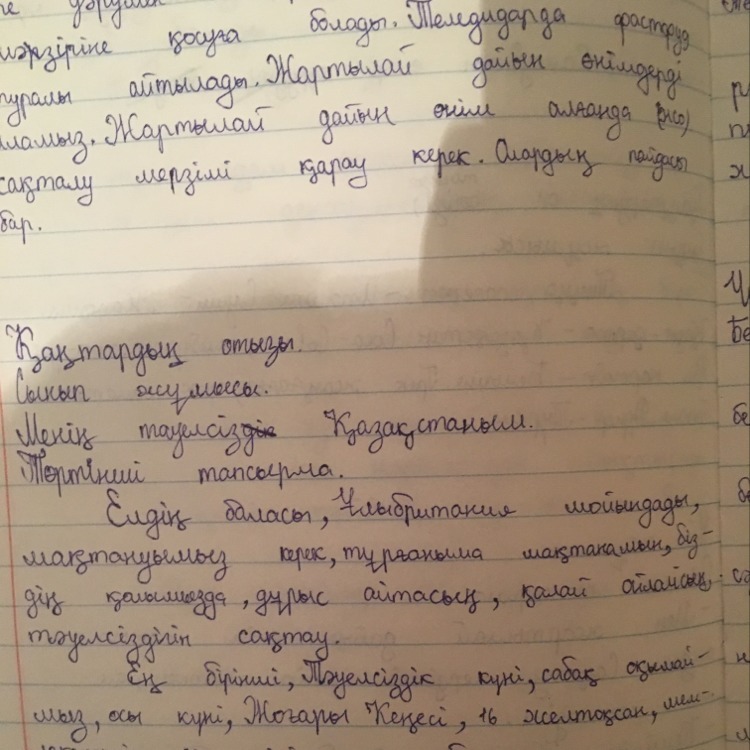 болады. Теледидарда фастфуд
мәзіріне қосуға
туралы айтылады. Жартылай дайын өнімдерді
ламыз. Жартылай дайын өнім алғанда
сақталу мерзімі қарау керек. Олардың пайдасы
бар.
Қаңтардың отызы.
Сынып жұмысы.
Менің тәуелсіз Қазақстаным.
Төртінші тапсырма.
Елдің баласы, Ұлыбритания мойындады,
мақтануымыз керек, тұрғаныма мақтанамын, біз-
дің қолымызда, дұрыс айтасың, қалай ойлайсың
тәуелсіздігін сақтау.
Ең бірінші, Тәуелсіздік күні, сабақ оқымай-
мыз, осы күні, Жоғары Кеңесі, 16 желтоқсан, мем-